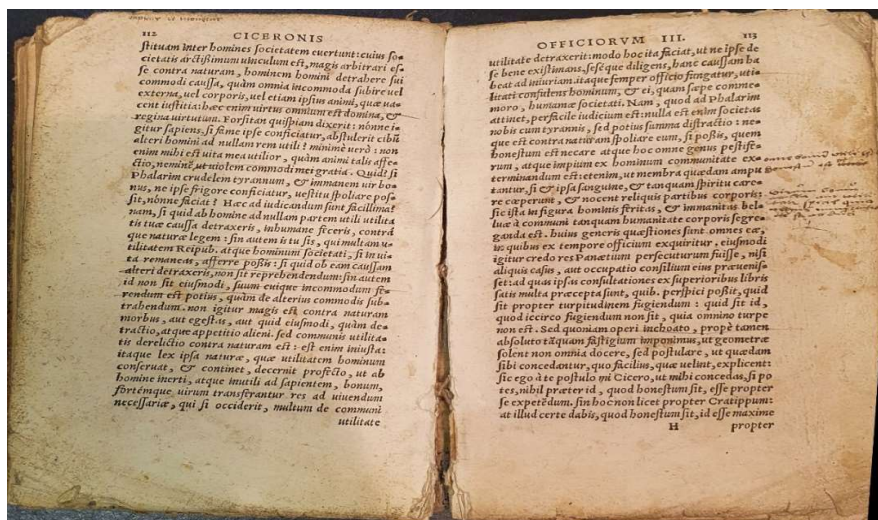 112 CICERONIS
stituam inter homines societatem euertunt: cuius so-
cietatis arctißimum uinculum est, magis arbitrari es-
se contra naturam, hominem homini detrahere sui
commodi caussa, quàm omnia incommoda subire uel
externa, uel corporis, uel etiam ipsius animi, quæ ua-
cent iustitia: hæc enim uirtus omnium est domina, &
regina uirtutum. Forsitan quispiam dixerit: nónne i-
gitur sapiens, si fame ipse conficiatur, abstulerit cibũ
alteri homini ad nullam rem utili? minimè uerò: non
enim mihi est uita mea utilior, quàm animi talis affe-
ctio, neminẽ ut uiolem commodi mei gratia. Quid? si
Phalarim crudelem tyrannum, & immanem uir bo-
nus, ne ipse frigore conficiatur, uestitu spoliare pos-
sit, nónne faciat? Hæc ad iudicandum sunt facillima:
nam, si quid ab homine ad nullam partem utili utilita
tis tuæ caussa detraxeris, inhumane feceris, contrá
que naturæ legem: sin autem is tu sis, qui multam u-
tilitatem Reipub. atque hominum societati, si in ui-
ta remaneas, afferre poßis: si quid ob eam caussam
alteri detraxeris, non sit reprehendendum: sin autem
id non sit eiusmodi, suum cuique incommodum fe-
rendum est potius, quàm de alterius commodis sub-
trahendum. non igitur magis est contra naturam
morbus, aut egestas, aut quid eiusmodi, quàm de-
tractio, atque appetitio alieni. sed communis utilita-
tis derelictio contra naturam est: est enim iniusta:
itaque lex ipsa naturæ, quæ utilitatem hominum
conseruat, & continet, decernit profecto, ut ab
homine inerti, atque inutili ad sapientem, bonum,
fortémque uirum transferantur res ad uiuendum
necessariæ, qui si occiderit, multum de communi
utilitate
OFFICIORVM III. 113
utilitate detraxerit: modo hoc ita faciat, ut ne ipse de
se bene existimans, seséque diligens, hanc caussam ha
beat ad iniuriam. itaque semper officio fungatur, uti-
litati consulens hominum, & ei, quam sæpe comme-
moro, humanæ societati. Nam, quod ad Phalarim
attinet, perfacile iudicium est: nulla est enim societas
nobis cum tyrannis, sed potius summa distractio: ne-
que est contra naturam spoliare eum, si poßis, quem
honestum est necare atque hoc omne genus pestife-
rum, atque impium ex hominum communitate ex-
terminandum est: etenim, ut membra quædam ampu
tantur, si & ipsa sanguine, & tanquam spiritu care-
re cœperunt, & nocent reliquis partibus corporis:
sic ista in figura hominis feritas, & immanitas bel-
luæ à communi tanquam humanitate corporis segre-
ganda est. huius generis quæstiones sunt omnes eæ,
in quibus ex tempore officium exquiritur, eiusmodi
igitur credo res Panætium persecuturum fuisse, nisi
aliquis casus, aut occupatio consilium eius præuenis-
set: ad quas ipsas consultationes ex superioribus libris
satis multa præcepta sunt, quib. perspici poßit, quid
sit propter turpitudinem fugiendum: quid sit id,
quod iccirco fugiendum non sit, quia omnino turpe
non est. Sed quoniam operi inchoato, propè tamen
absoluto tãquam fastigium imponimus, ut geometræ
solent non omnia docere, sed postulare, ut quædam
sibi concedantur, quo facilius, quæ uelint, explicent:
sic ego à te postulo mi Cicero, ut mihi concedas, si po
tes, nihil præter id, quod honestum sit, esse propter
se expetẽdum. sin hoc non licet propter Cratippum:
at illud certe dabis, quod honestum sit, id esse maxime
H propter